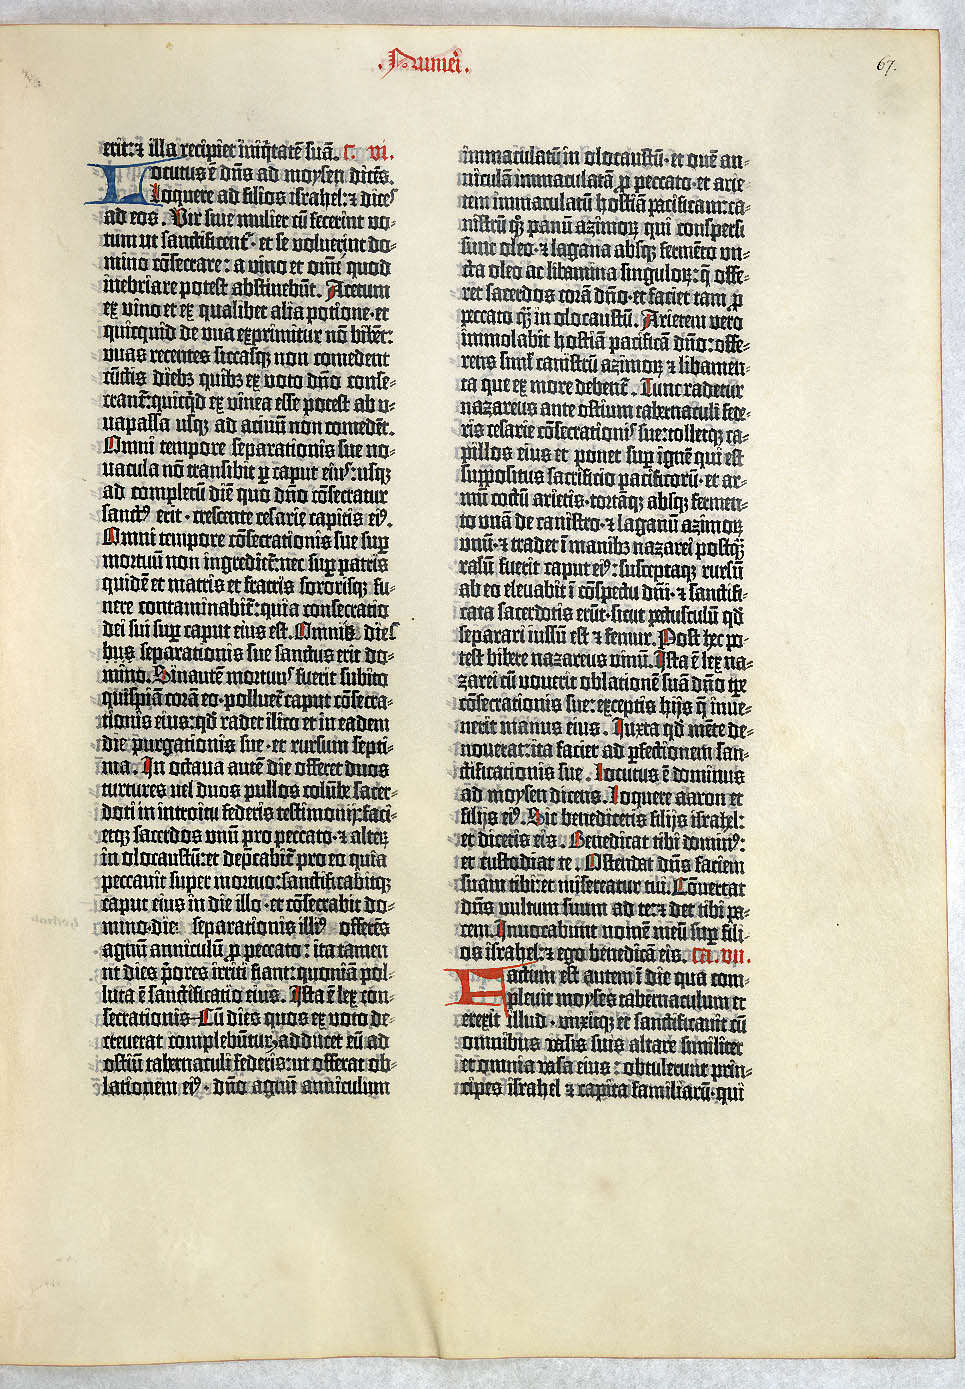 .Numeri.
67.
erit: ⁊ illa recipiet iniq̇tatē suā. C. vi.
Locutus ē dn̄s ad moysen dicēs.
Loquere ad filios israhel: ⁊ dices
ad eos. Vir siue mulier cū fecerint vo-
tum ut sanctificent᷒ · et se voluerint do-
mino cōsecrare: a vino et omī quod
inebriare potest abstinebūt. Acetum
ex vino et ex qualibet alia potione · et
quicquid de uua exprimitur nō bibēt:
uuas recentes siccasqꝫ non comedent
cūctis diebꝫ quibꝫ ex voto dn̄o conse-
crant᷒: quicq̇d ex vinea esse potest ab v-
uapassa usqꝫ ad acinū non comedēt.
Omni tempore separationis sue no-
uacula nō transibit ꝑ caput eius: usqꝫ
ad completū diē quo dn̄o cōsecratur
sanctꝰ erit · crescente cesarie capitis eiꝰ.
Omni tempore cōsecrationis sue suꝑ
mortuū non ingrediet᷒: nec suꝑ patris
quidē et matris et fratris sororisqꝫ fu-
nere contaminabit᷒: quia consecratio
dei sui suꝑ caput eius est. Omnibꝫ dies
bus separationis sue sanctus erit do-
mino. Sinautē mortuus fuerit subito
quispiā corā eo · polluet᷒ caput cōsecra-
tionis eius: qd̄ radet ilico et in eadem
die purgationis sue · et rursum septi-
ma. In octaua autē die offeret duos
turtures uel duos pullos colūbe sacer-
doti in introitu federis testimonij: faci-
etqꝫ sacerdos unū pro peccato · ⁊ alterꝫ
in olocaustū: et dep̄cabit᷒ pro eo quia
peccauit super mortuo: sanctificabitqꝫ
caput eius in die illo · et cōsecrabit do-
mino · die separationis illiꝰ offerēs
agnū anniculū ꝑ peccato: ita tamen
ut dies p̄ores irriti fiant: quoniā pol-
luta ē sanctificatio eius. Ista ē lex con-
secrationis. Cū dies quos ex voto de-
creuerat complebūtur, adducet eū ad
ostiū tabernaculi federis: ut offerat ob-
lationem eiꝰ · dn̄o agnū anniculum
immaculatū in olocaustū · et ouē an-
niculā immaculatā ꝑ peccato · et arie-
tem immaculatū hostiā pacificam: ca-
nistrū qꝫ panū azimoꝝ qui conspersi
sint oleo · ⁊ lagana absqꝫ fermēto un-
cta oleo ac libamina singuloꝝ: q̄ offe-
ret sacerdos corā dn̄o · et faciet tam ꝑ
peccato q̄ꝫ in olocaustū. Arietem vero
immolabit hostiā pacificā dn̄o: offe-
rens simĺ canistrū azimoꝝ ⁊ libamen-
ta que ex more debent᷒. Tunc radetur
nazareus ante ostium tabernaculi fede-
ris cesarie cōsecrationis sue: tolletqꝫ ca-
pillos eius et ponet suꝑ ignē qui est
suppositus sacrificio pacificorū · et ar-
mū coctū arietis · tortāqꝫ absqꝫ fermen-
to unā de canistro · ⁊ laganū azimoꝝ
unū · ⁊ tradet ī manibꝫ nazarei postq̄ꝫ
rasū fuerit caput eiꝰ: susceptaqꝫ rursū
ab eo eleuabit ī cōspectu dn̄i · ⁊ sanctifi-
cata sacerdotis erūt · sicut pectusculū qd̄
separari iussū est ⁊ femur. Post hec po-
test bibere nazareus vinū. Ista ē lex na-
zarei cū vouerit oblationē suā dn̄o tꝑe
cōsecrationis sue: exceptis hijs q̄ inue-
nerit manus eius. Juxta qd̄ mēte de-
uouerat: ita faciet ad ꝑfectionem san-
ctificationis sue. Locutus ē dominus
ad moysen dicens. Loquere aaron et
filijs eiꝰ. Sic benedicetis filijs israhel:
et dicetis eis. Benedicat tibi dominꝰ:
et custodiat te. Ostendat dn̄s faciem
suam tibi: et misereatur tui. Cōuertat
dn̄s vultum suum ad te: ⁊ det tibi pa-
cem. Inuocabunt nomē meū suꝑ fili-
os israhel: ⁊ ego benedicā eis. Ca. vii.
Factum est autem ī die qua com-
pleuit moyses tabernaculum et
erexit illud · unxitqꝫ et sanctificauit cū
omnibus vasis suis altare similiter
et omnia vasa eius: obtulerunt prin-
cipes israhel ⁊ capita familiarū · qui